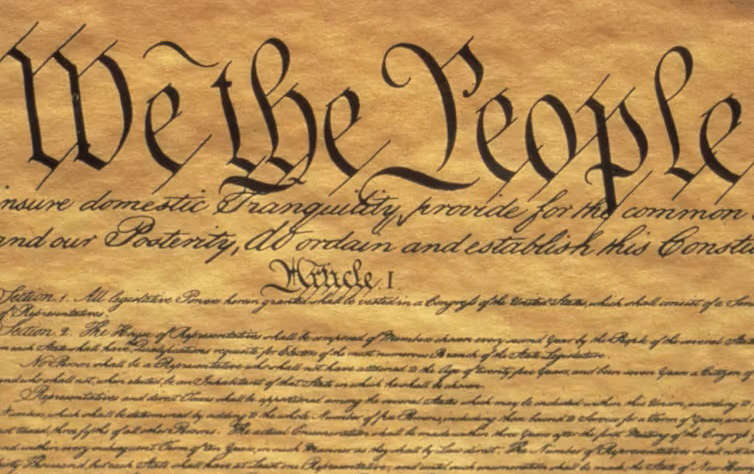 We the People
insure domestic Tranquility, provide for the common
and our Posterity, do ordain and establish this Constit
Article. I.
Section. 1. All legislative Powers herein granted shall be vested in a Congress of the United States, which shall consist of a Sen
of Representatives.
Section. 2. The House of Representatives shall be composed of Members chosen every second Year by the People of the several States
in each State shall have Qualifications requisite for Electors of the most numerous Branch of the State Legislature.
No Person shall be a Representative who shall not have attained to the Age of twenty five Years, and been seven Years a Citizen of
and who shall not, when elected, be an Inhabitant of that State in which he shall be chosen.
Representatives and direct Taxes shall be apportioned among the several States which may be included within this Union, according to
Numbers, which shall be determined by adding to the whole Number of free Persons, including those bound to Service for a Term of Years, and
not taxed, three fifths of all other Persons. The actual Enumeration shall be made within three Years after the first Meeting of the Congress
and within every subsequent Term of ten Years, in such Manner as they shall by Law direct. The Number of Representatives shall not
thirty Thousand, but each State shall have at Least one Representative; and until such enumeration shall be made, the State of New